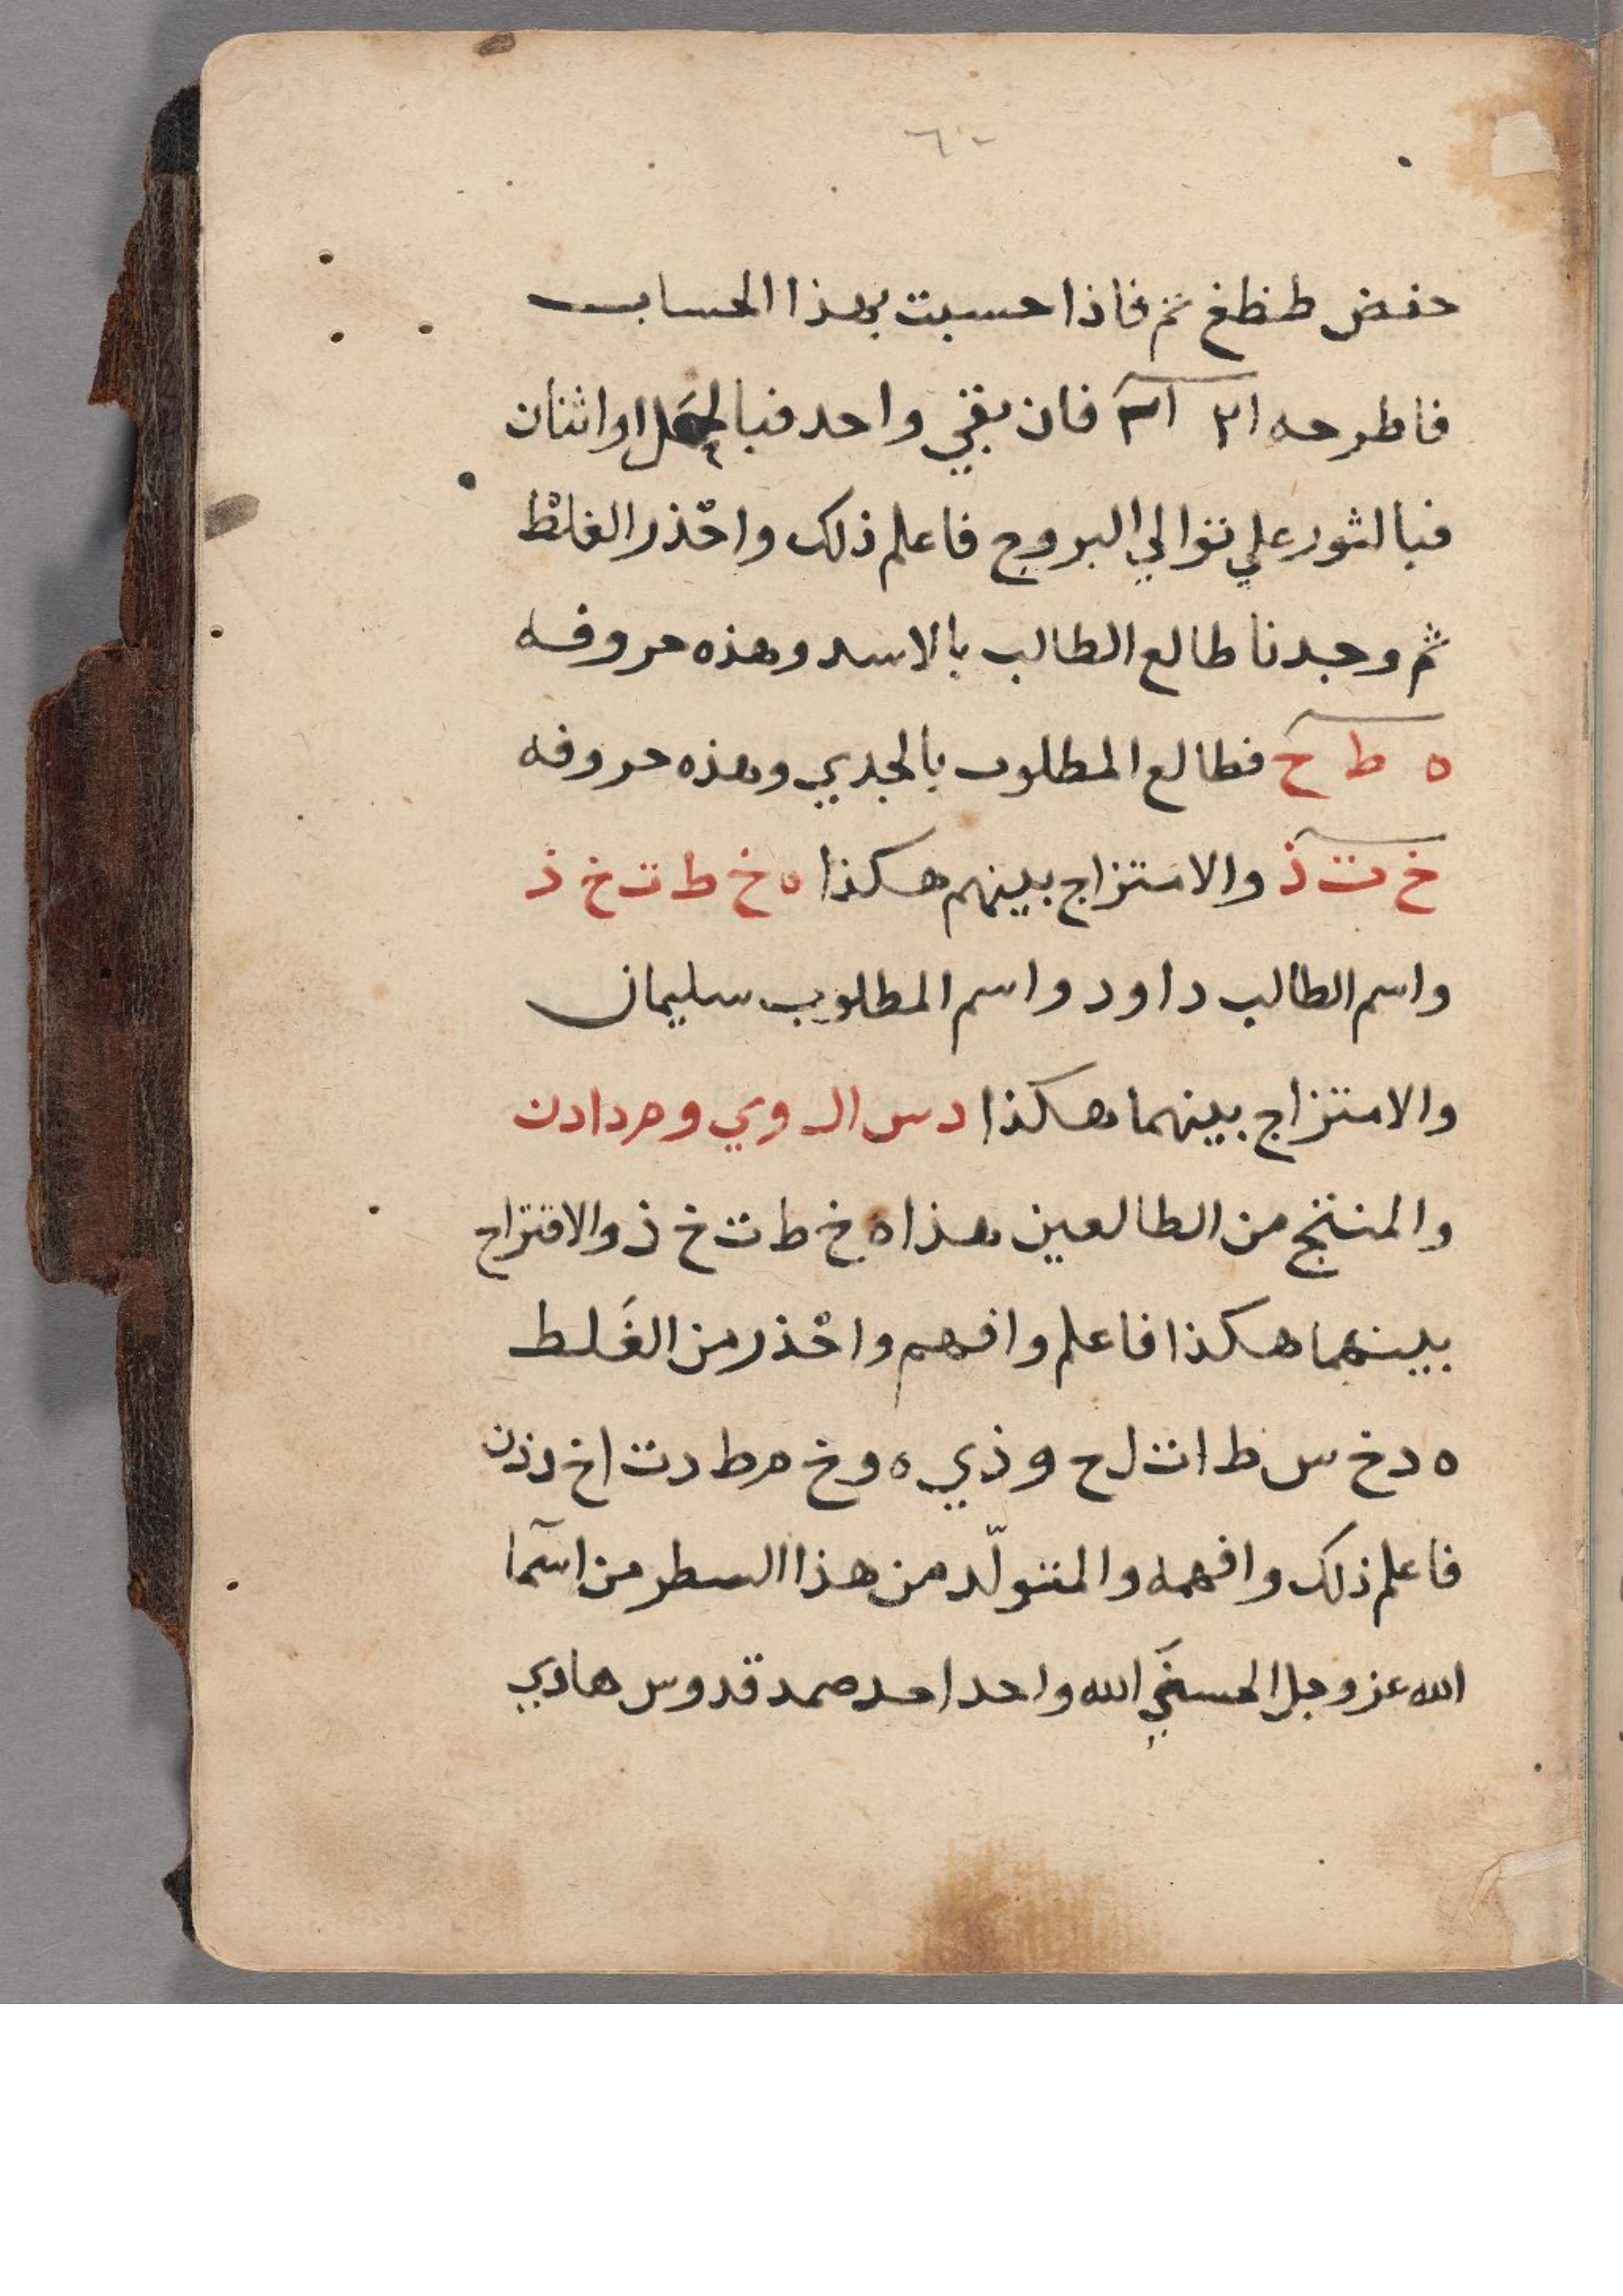 ٦٠
حفض طظغ ثم فاذا حسبت بهذا الحساب
فاطرحه ١٢ ١٢ فان بقي واحد فبالحمل او اثنان
فبالثور علي توالي البروج فاعلم ذلك واحْذر الغلطْ
ثم وجدنا طالع الطالب بالاسد وهذه حروفه
ه ط ح فطالع المطلوب بالجدي وهذه حروفه
خ ت ذ والامتزاج بينهم هكذا ه خ ط ت خ ذ
واسم الطالب داود واسم المطلوب سليمان
والامتزاج بينهما هكذا د س ا ل و ي و م د ا د ن
والمنتج من الطالعين هذا ه خ ط ت خ ذ والامتزاج
بينهما هكذا فاعلم وافهم واحْذر من الغَلط
ه د خ س ط ا ت ل ح و ذ ي ه و خ م ط د ت ا خ د ذ ن
فاعلم ذلك وافهمه والمتولّد من هذا السطر من اسمآ
الله عز وجل الحسني الله واحد احد صمد قدوس هادي